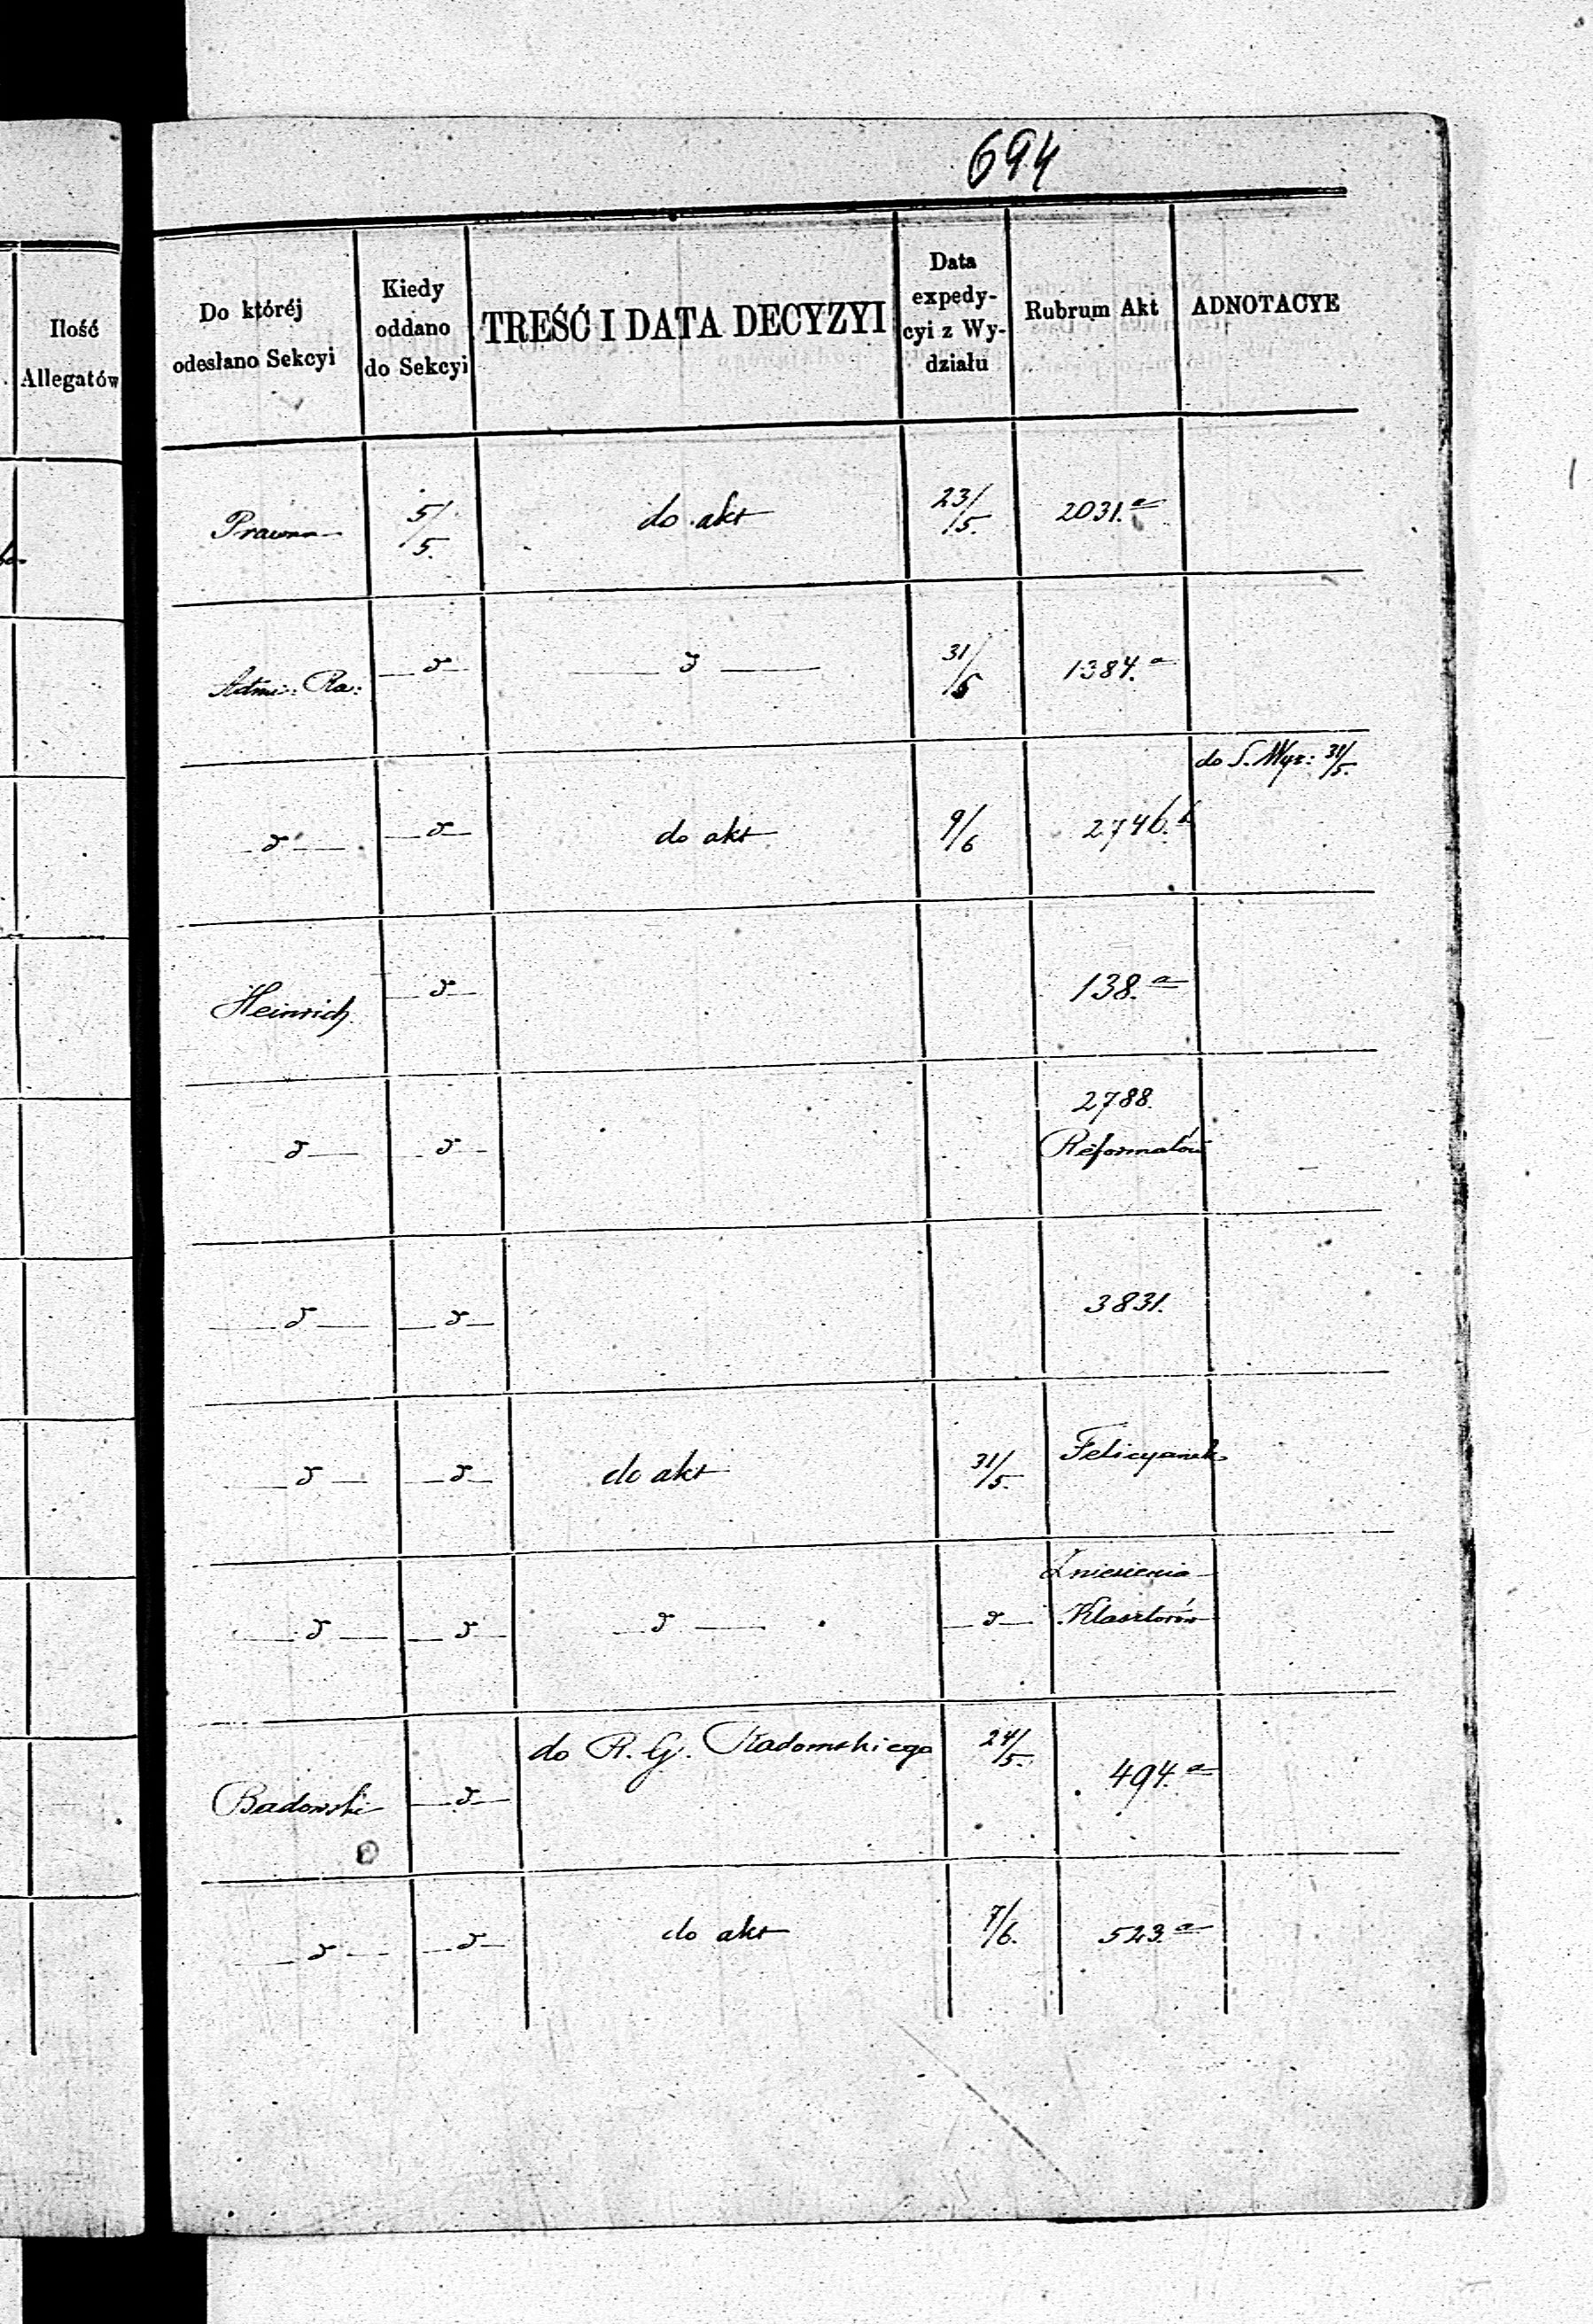 694
Ilość
Allegatów
Do któréj
odesłano Sekcyi
Kiedy
oddano
do Sekcyi
TREŚĆ I DATA DECYZYI
Data
expedy-
cyi z Wy-
działu
Rubrum Akt
ADNOTACYE
Prawna 5/5. do akt 23/5. 2031.a
Admi: Ra: — d — — d — 31/5 1384.a
do S. Wyz: 31/5.
— d — — d — do akt 9/6 2746.b
Heinrich — d — 138.a
— d — — d — 2788.
Reformatów
— d — — d — 3831.
— d — — d — do akt 31/5. Felicyanek
— d — — d — — d — — d — Zniesienia
Klasztorów
Badowski — d — do R. G. Radomskiego 24/5. 494.a
— d — — d — do akt 7/6. 523.a